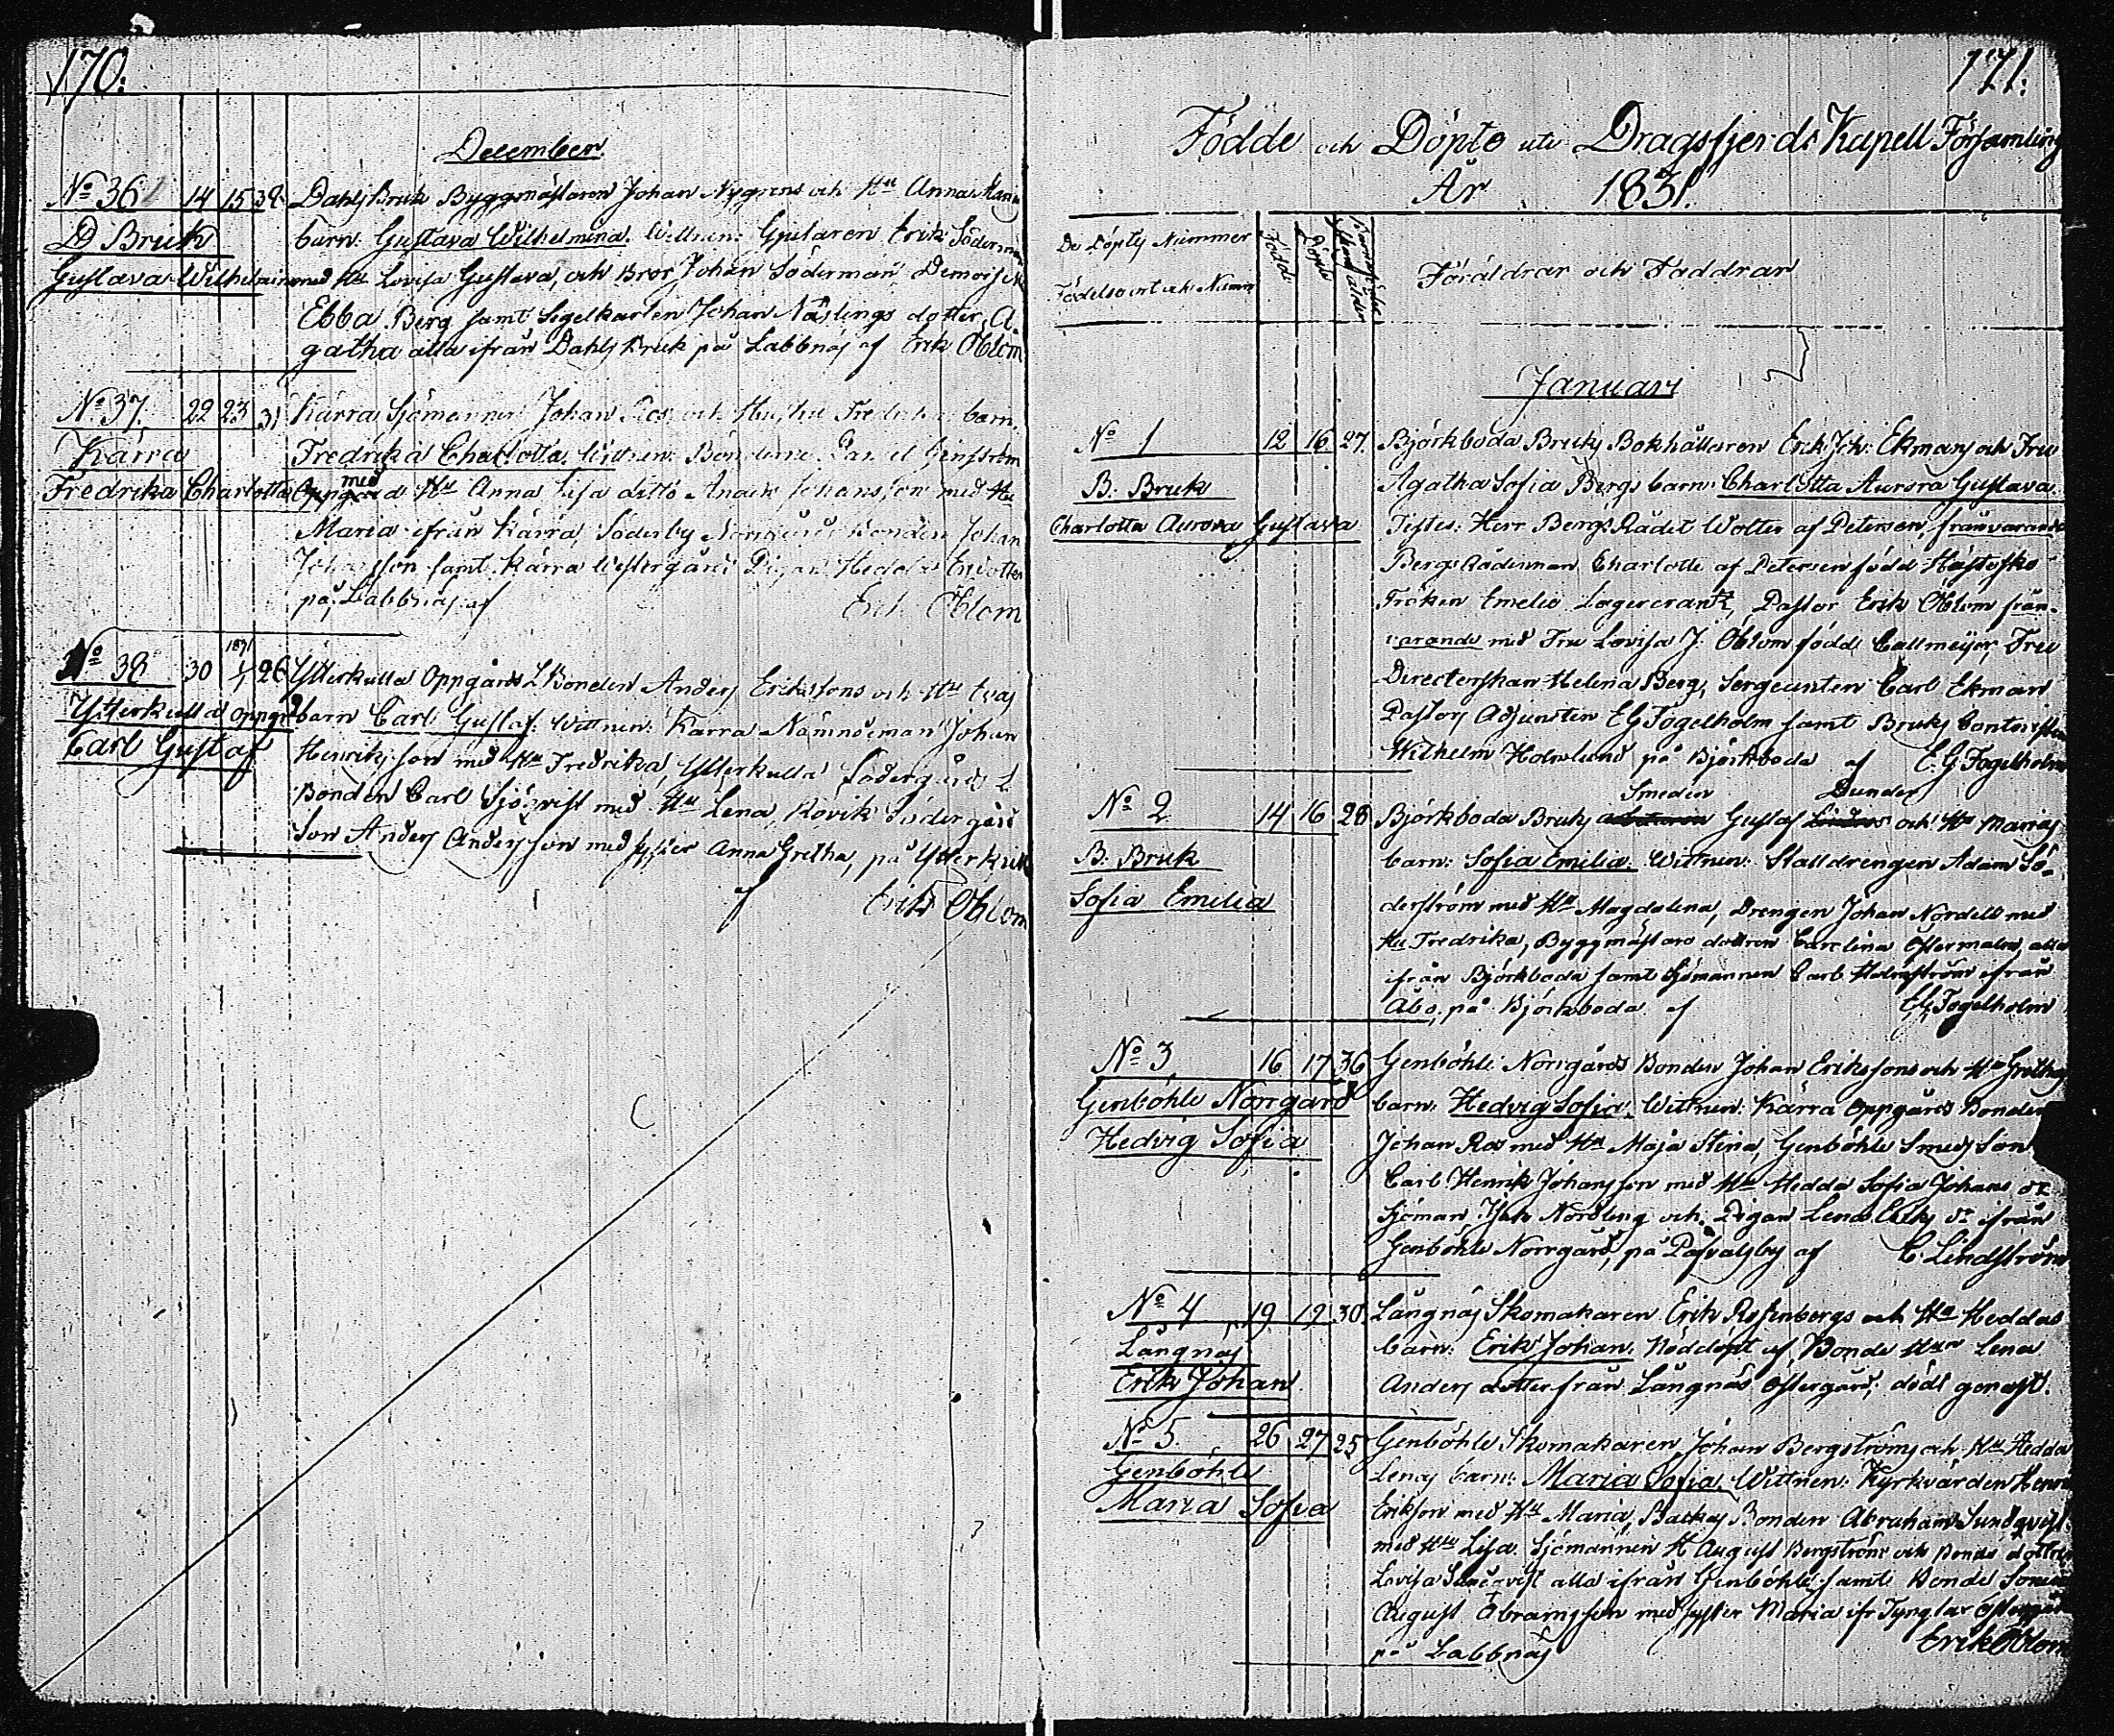 170.
December
No 36 14 15 38 Dahls Bruk Byggmästaren Johan Nygrens och Hu Anna Maria
D Bruk barn: Gustava Wilhelmina. Wittnen: Gjutaren Erik Söderman
Gustava Wilhelmina med Hu Lovisa Gustava, och Bror Johan Söderman Demoiselle
Ebba Berg samt Segelkarlen Johan Näslings dotter A-
gatha alla ifrån Dahls Bruk på Labbnäs af Erik Oblom
No 37. 22 23 31 Kärra Sjömannen Johan Ros och Hustru Fredrikas barn.
Kärra Fredrika Charlotta. Wittnen: Bönderne
Fredrika Charlotta Oppgård med Hu Anna Lisa ditto Anders Johansson med Hu
Maria ifrån Kärra, Söderby Norrgårds Bonden Johan
Johansson samt Kärra Westergårds Pigan Hedda
på Labbnäs af Erik Oblom
No 38 30 1/1 26 Ytterkulla Oppgårds L Bonden Anders Erikssons och Hu Evas
Ytterkulla Oppgrd barn Carl Gustaf. Wittnen: Kärra Nämndeman Johan
Carl Gustaf Henriksson med Hu Fredrika, Ytterkulla Södergårds L
Bonden Carl Sjöqvist med Hu Lena, Rövik Södergård
Son Anders Andersson med syster Anna Gretha, på Ytterkulla
af Erik Oblom
171.
Födde och Döpte uti Dragsfjerds Kapell Församling
År 1831.
De Döptes Nummer
Födelseort och Namn
Födde
Döpte
Föräldrar och Faddrar
Januari
No 1 12 16 27. Björkboda Bruks Bokhållaren Erik Joh: Ekmans och Fru
B: Bruk Agatha Sofia Bergs barn: Charlotta Aurora Gustava.
Charlotta Aurora Gustava Testes: Herr Bergs Rådet Wolter af Petersen, frånvarande
Bergs Rådinnan Charlotte af Petersen född Hästesko
Fröken Emelie Lagercrantz, Pastor Erik Oblom från-
varande med Fru Lovisa J. Oblom född Callmeijer, Fru
Directerskan Helena Berg, Sergeanten Carl Ekman
Pastors Adjunsten E G Fogelholm samt Bruks Contoristen
Wilhelm Holmlund på Björkboda af E. G. Fogelholm
Smeden Dunder
No 2 14 16 26 Björkboda Bruks Gustaf och Hu Marias
B: Bruk barn: Sofia Emilia. Wittnen: Stalldrengen Adam Sö-
Sofia Emilia derström med Hu Magdalena, Drengen Johan Nordell med
Hu Fredrika, Byggmästare dottren Carolina Östermalm, alla
ifrån Björkboda samt Sjömannen Carl Holmström ifrån
Åbo, på Björkboda af E G Fogelholm
No 3 16 17 36 Genböhle Norrgårds Bonden Johan Erikssons och Hu Grethas
Genböhle Norrgård barn: Hedvig Sofia. Wittnen: Kärra Oppgårds Bonden
Hedvig Sofia Johan Ros med Hu Maja Stina, Genböhle Smeds Son
Carl Henrik Johansson med Hu Hedda Sofia Johans dr
Sjöman Isak Nordling och Pigan Lena Eriks dr ifrån
Genböhle Norrgård, på Påsvalsby af C. Lindström
No 4 19 19 30 Långnäs Skomakaren Erik Rosenbergs och Hu Heddas
Långnäs barn: Erik Johan. Nöddöpt af Bonde Hun Lena
Erik Johan Anders dotter från Långnäs Östergård, död genast.
No 5. 26 27 25 Genböhle Skomakaren Johan Bergströms och Hu Hedda
Genböhle Lenas barn: Maria Sofia. Wittnen: Kyrkvärden Henrik
Maria Sofia Erikson med Hu Maria, Backas Bonden Abraham Sundqvist
med Hu Lisa. Sjömannen H August Bergström och Bonde dottren
Lovisa Sundqvist alla ifrån Genböhle samt Bonde Sonen
August Abramsson med syster Maria ifr Tynglax Östergård
på Labbnäs Erik Oblom